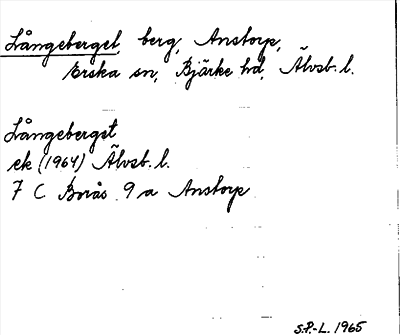 Långeberget, berg, Anstorp,
Erska sn, Bjärke hd, Älvsb. l.
Långeberget
ek (1964) Älvsb. l.
7 C Borås 9 a Anstorp
S.P.-L. 1965